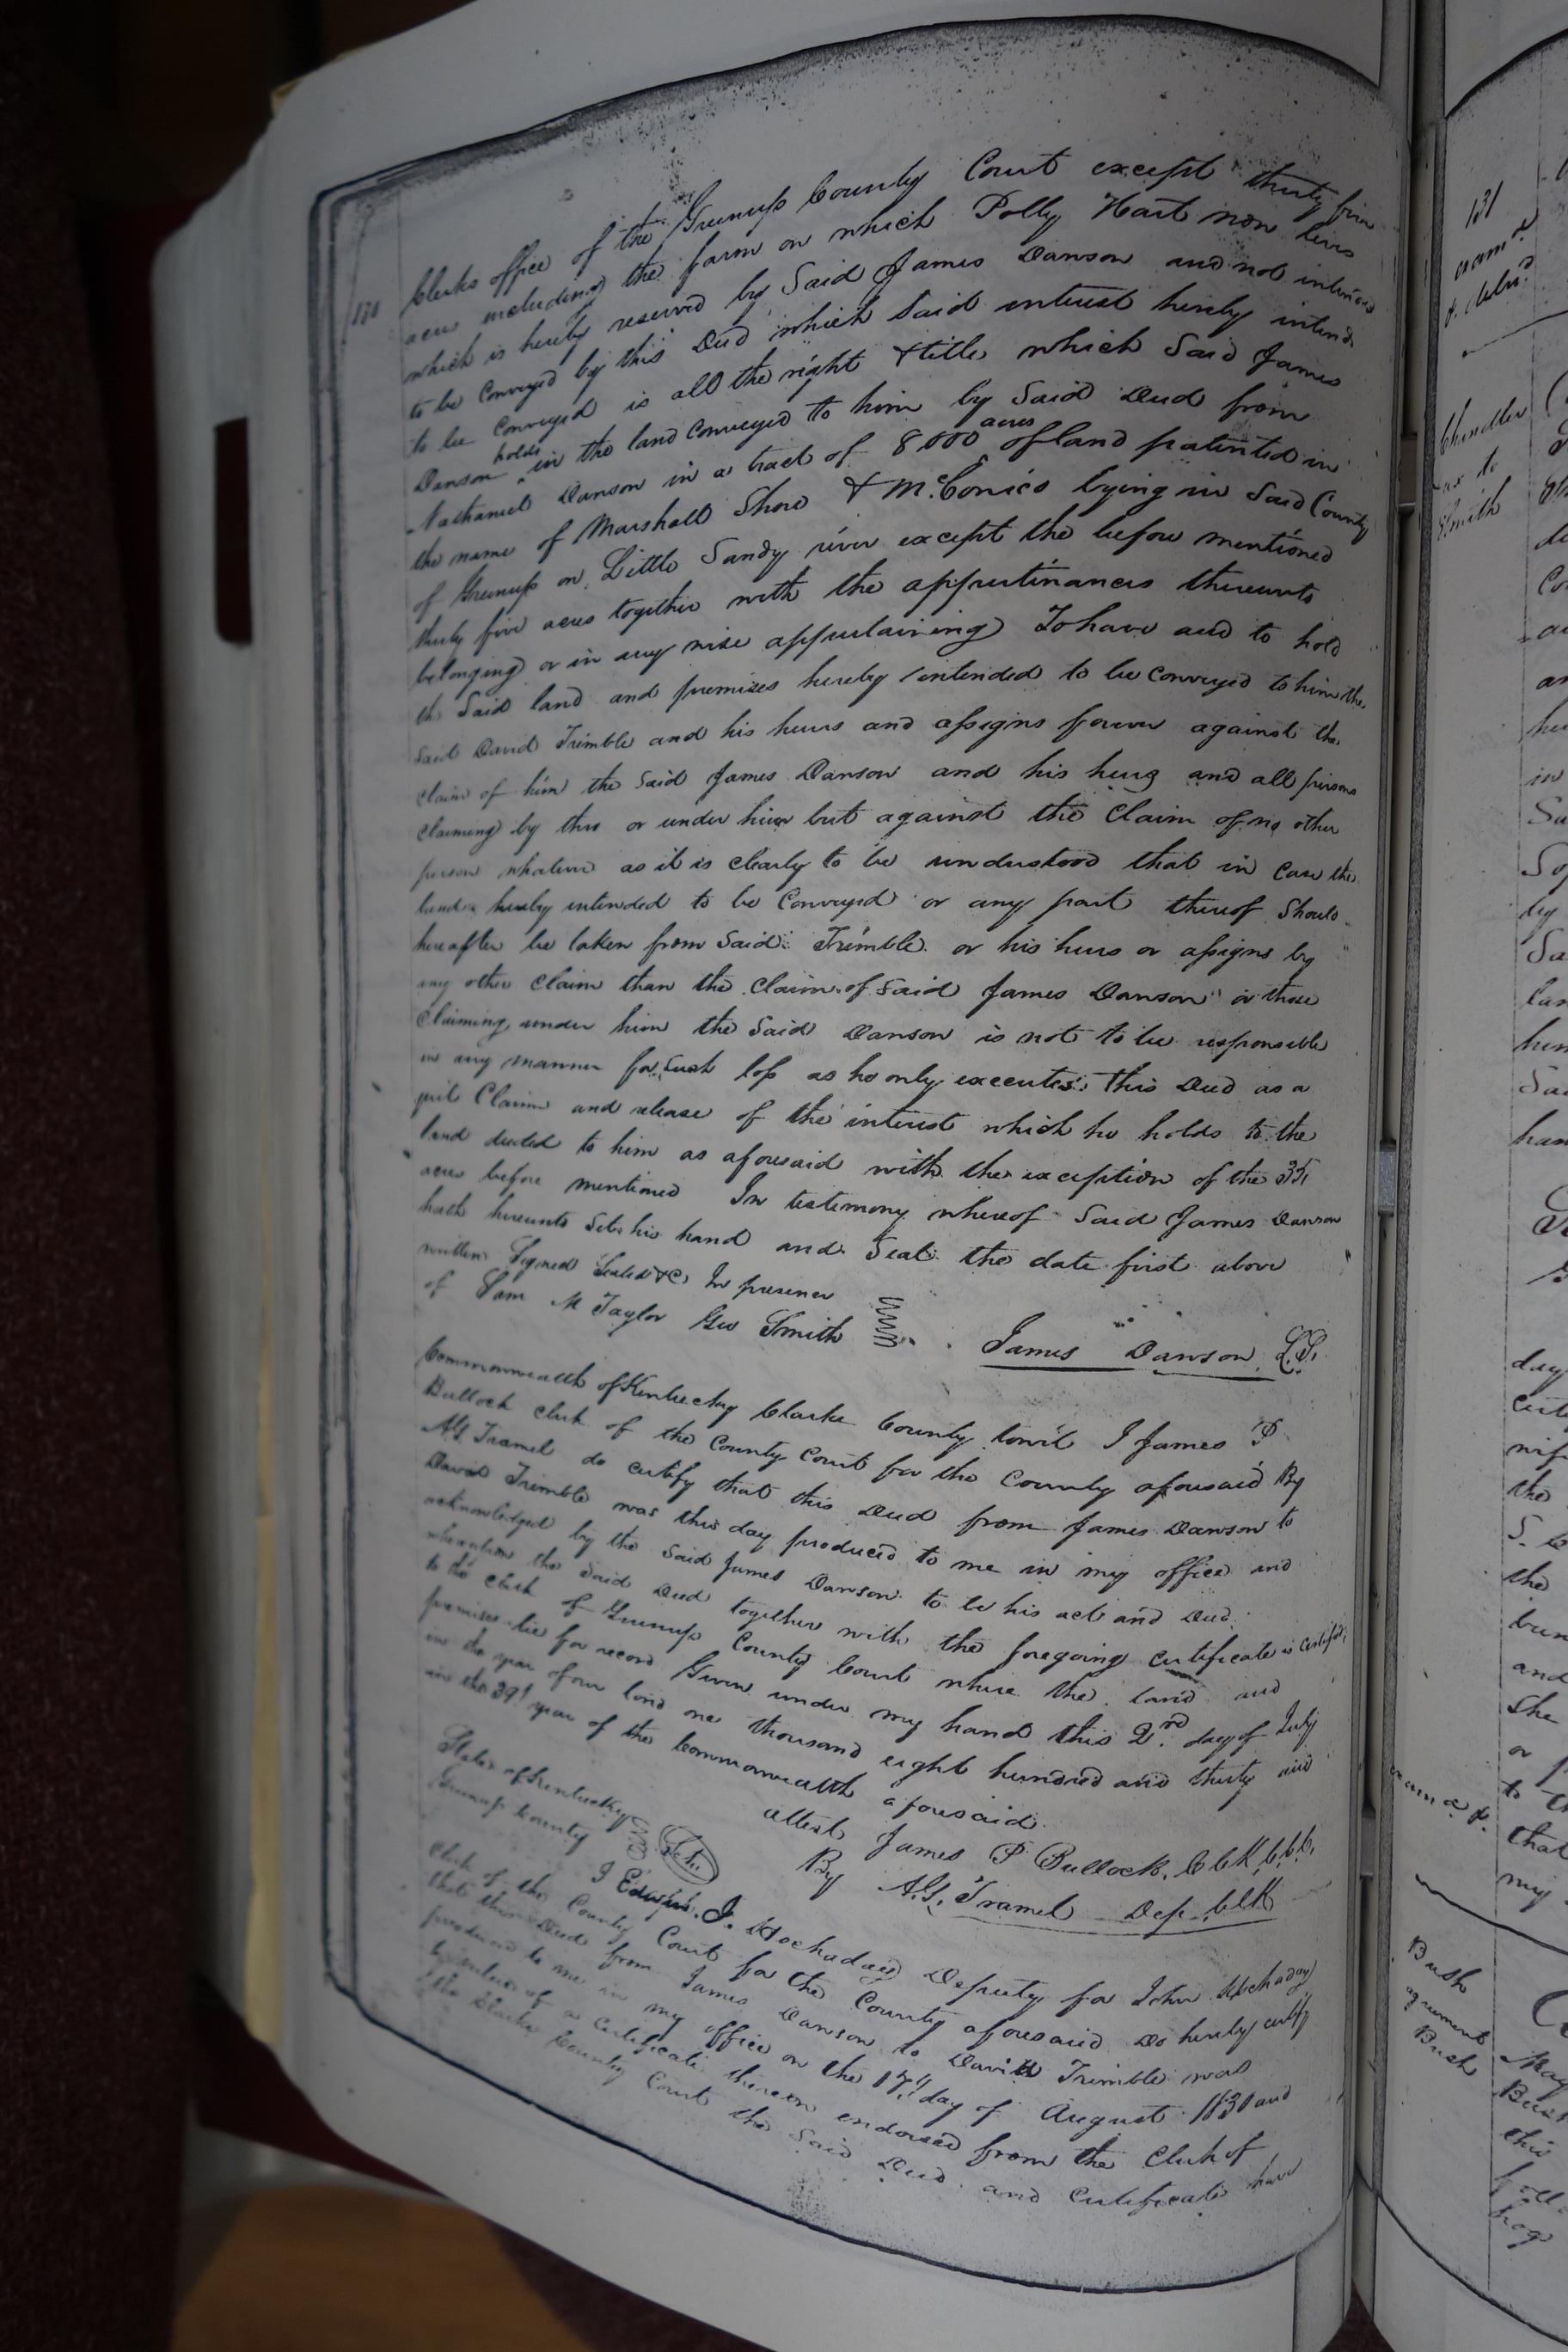 130
Clerks office of the Greenup County Court except thirty five
acres including the farm on which Polly Hart now lives
which is hereby reserved by Said James Dawson and not intended
to be conveyed by this Deed which Said interest hereby intend
to be conveyed is all the right & title which Said James
Dawson holds in the land conveyed to him by Said Deed from
Nathaniel Dawson in a tract of 8,000 acres of land patented in
the name of Marshall Shore & McConico lying in Said County
of Greenup on Little Sandy river except the before mentioned
thirty five acres together with the appurtinances thereunto
belonging or in any wise appurtaining To have and to hold
the Said land and premises hereby intended to be conveyed to him the
Said David Trimble and his heirs and assigns forever against the
claim of him the Said James Dawson and his heirs and all persons
claiming by thro or under him but against the claim of no other
person whatever as it is clearly to be understood that in case the
land hereby intended to be Conveyed or any part thereof Should
hereafter be taken from Said Trimble or his heirs or assigns by
any other claim than the claim of Said James Dawson or those
claiming under him the Said Dawson is not to be responsible
in any manner for Such loss as he only executes this Deed as a
quit Claim and release of the interest which he holds to the
land deeded to him as aforesaid with the exception of the 35
acres before mentioned In testimony whereof Said James Dawson
hath hereunto Set his hand and Seal the date first above
written Signed Sealed &C In presence
of Sam M Taylor Geo Smith
James Dawson L.S.
Commonwealth of Kentucky Clarke County towit I James P
Bullock clerk of the County Court for the County aforesaid By
A.G. Tramel do certify that this Deed from James Dawson to
David Trimble was this day produced to me in my office and
acknowledged by the Said James Dawson to be his act and Deed
whereupon the Said Deed together with the foregoing certificate is certified
to the clerk of Greenup County Court where the land and
premises lie for record Given under my hand this 2nd day of July
in the year of our lord one thousand eight hundred and thirty and
in the 39th year of the Commonwealth aforesaid
attest James P Bullock, Clk, C.C.C.
By A.G. Tramel Dep. Clk
State of Kentucky
Greenup County Sct.
I Edwin J. Hockaday Deputy for John Hockaday
Clerk of the County Court for the County aforesaid Do hereby certify
that this Deed from James Dawson to David Trimble was
produced to me in my office on the 17th day of August 1830 and
by virtue of a certificate thereon endorsed from the Clerk of
the Clarke County Court the Said Deed and Certificate have
131
exam.d
& delvd.
Chandler
to
Smith
Bush
agreement
Bush